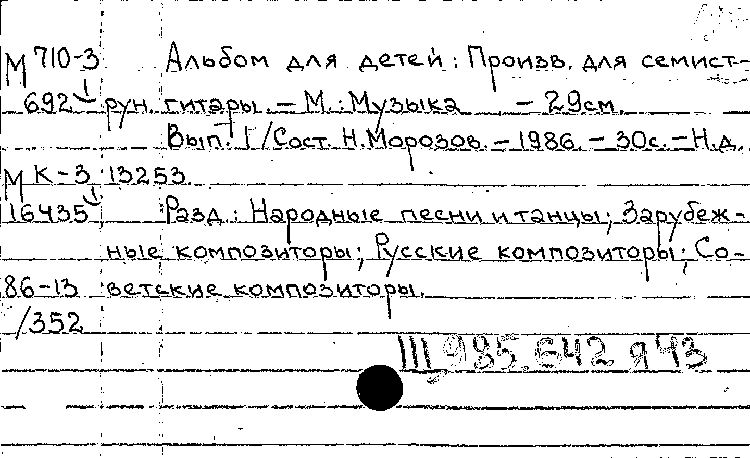 М 710-3 Альбом для детей: Произв. для семист-
692 рун. гитары. – М.: Музыка – 29см.
Вып. 1 / Сост. Н. Морозов. – 1986. – 30с. – Н.д.
М К-3 13253.
16435 Разд.: Народные песни и танцы; Зарубеж-
ные композиторы; Русские композиторы; Со-
86-13 ветские композиторы.
/352
Ш 985.642 я 43